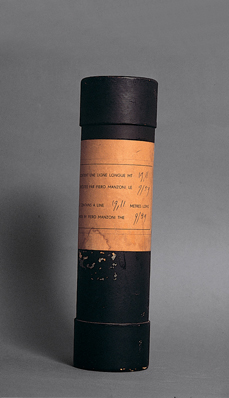 UNE LIGNE LONGUE MT 19,11
PAR PIERO MANZONI LE 9/59
A LINE 19,11 METRES LONG
PIERO MANZONI THE 9/59